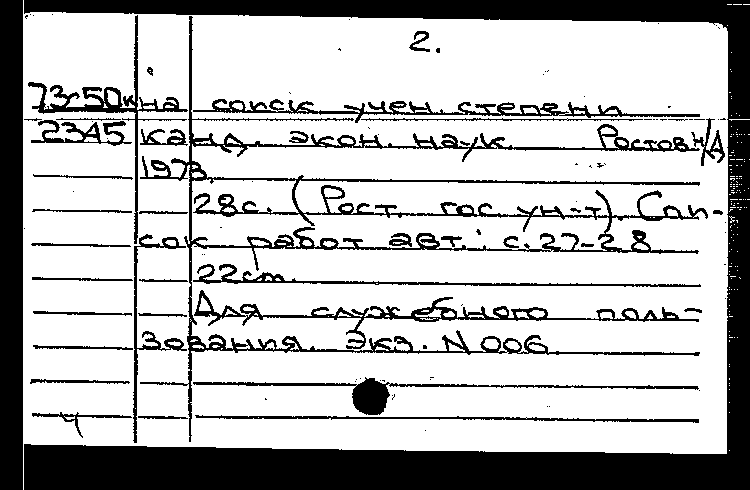 2.
73-50к на соиск учен. степени
2345 канд. экон. наук. Ростов н/Д
1973.
28с. (Рост. гос. ун-т). Спи-
сок работ авт.: с.27-28
22см.
Для служебного поль-
зования. Экз. N 006
ч